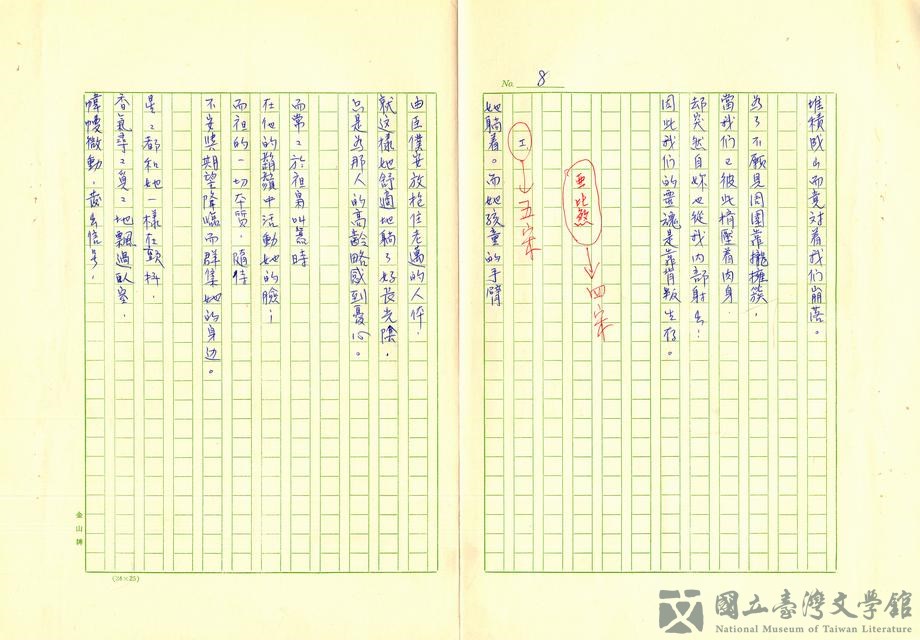 No. 8
堆積致山而竟对着我们崩落。
為了不願見周圍靠攏擁簇，
當我们已彼此擠壓着肉身
却突然自妳也從我内部射出：
因此我们的靈魂是靠背叛生存。
亞比煞
→四宋
I
→五宋
她躺着。而她孩童的手臂
由臣僕安放抱住老邁的人伴，
就这樣她舒適地躺了好長光陰，
只是為那人的高齡略感到憂心。
而常々於祖梟叫嚣時
在他的鬍鬚中活動她的臉；
而祖的一切本質，隨侍
不安與期望降臨而群集她的身边。
星々都和她一樣在顫抖，
香氣尋々覓々地飄過臥室，
幃幔微動，發出信号，
金山牌
(24×25)
國立臺灣文學館
National Museum of Taiwan Literature